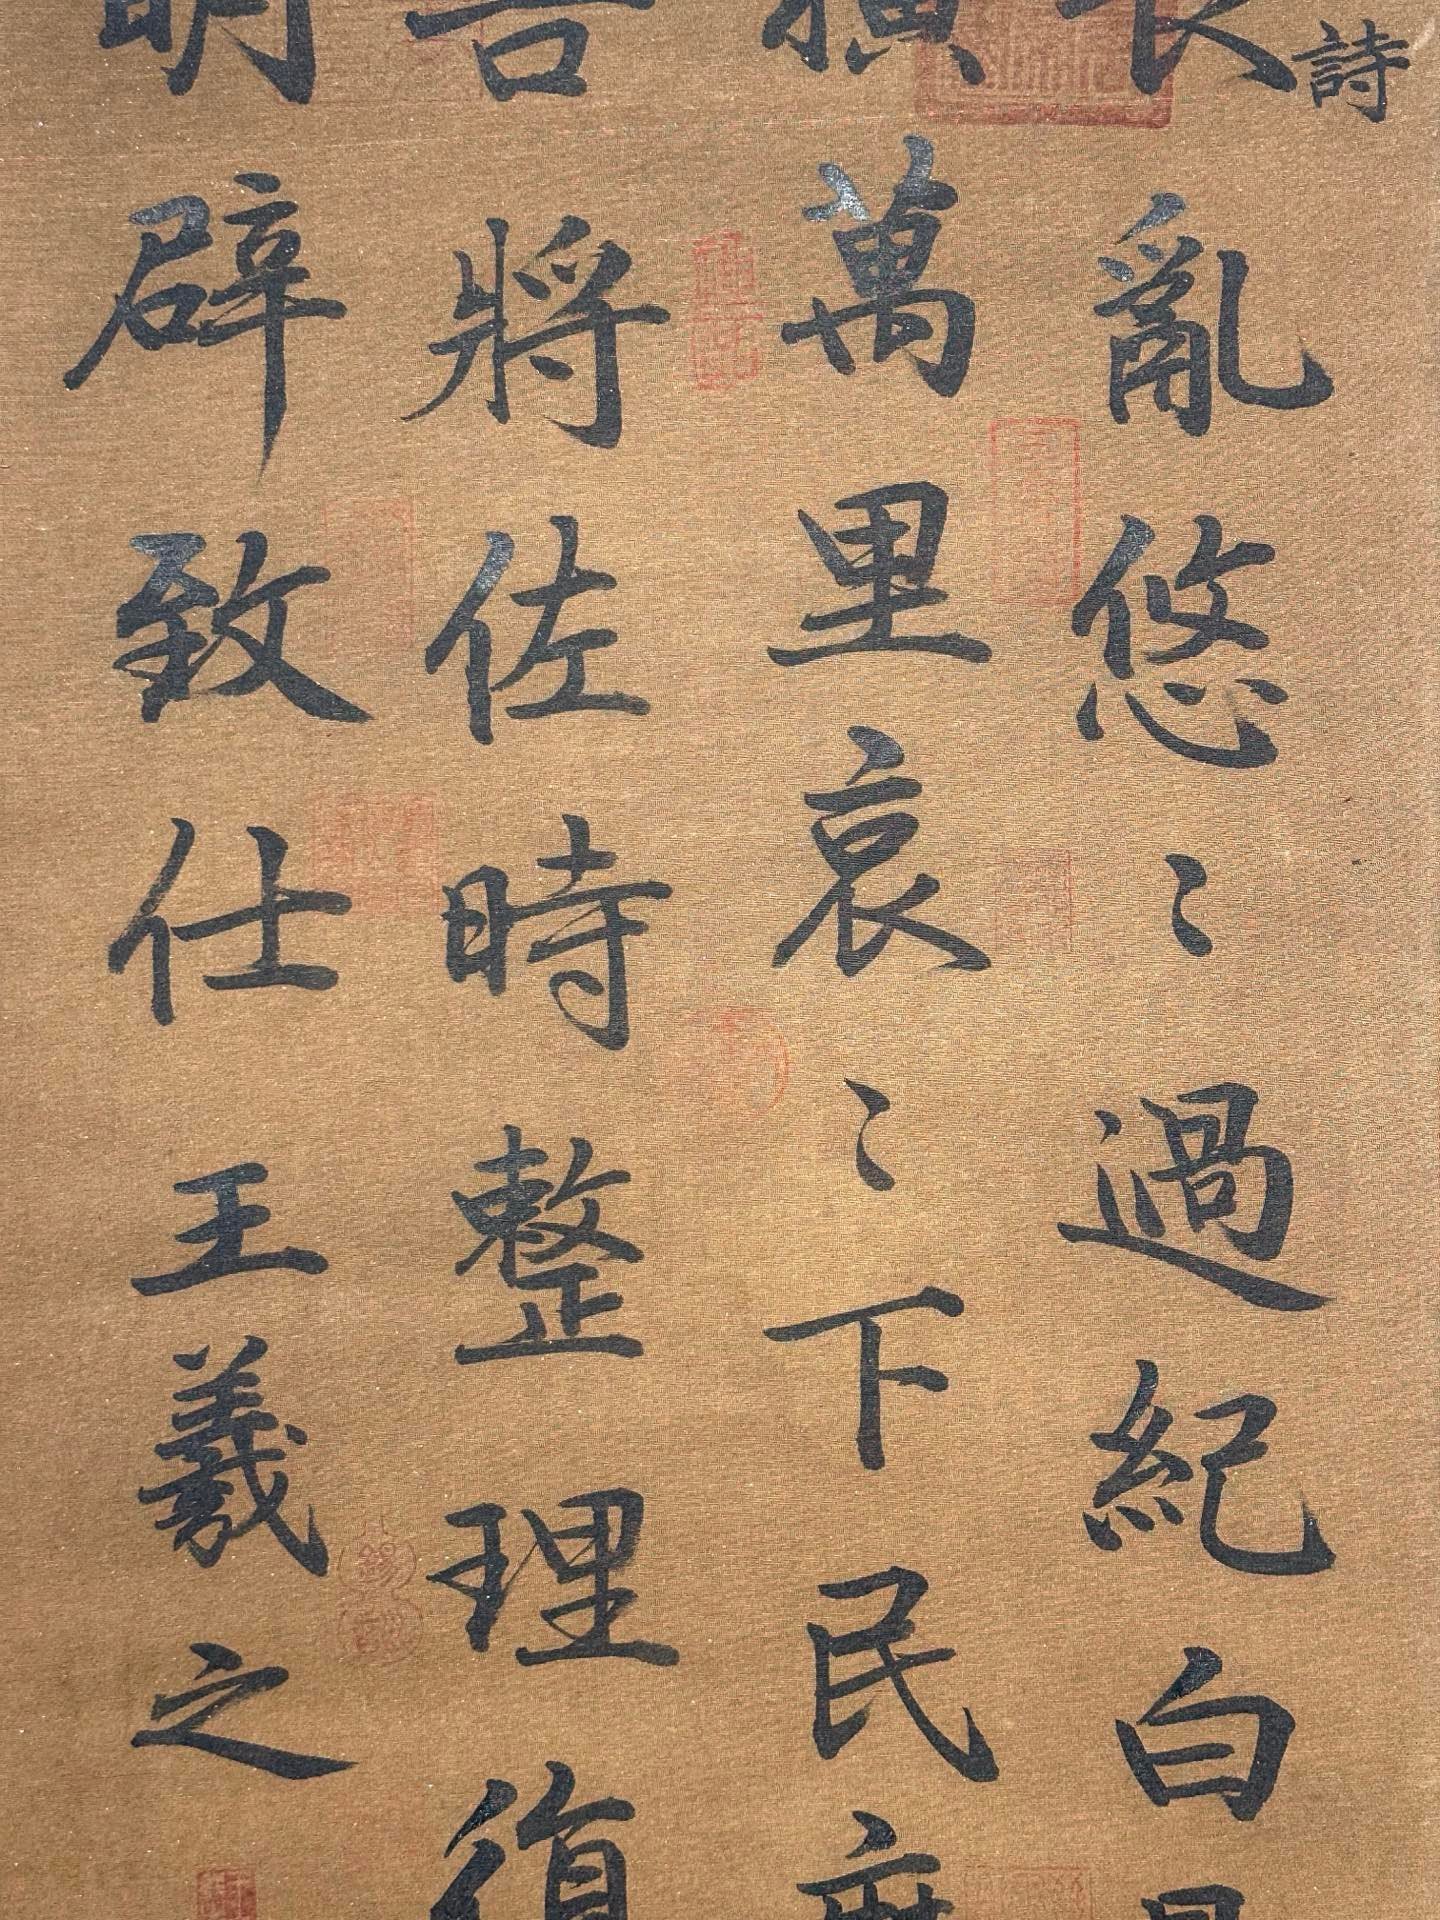 詩
長亂悠〻過紀白
橫萬里哀〻下民
吾將佐時整理復
明辟致仕王羲之